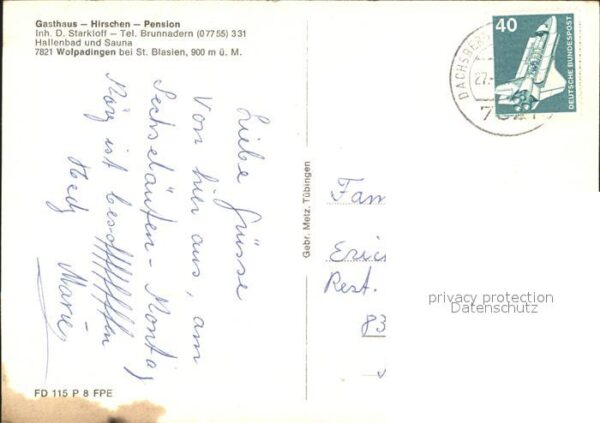 Gasthaus – Hirschen – Pension
Inh. D. Starkloff – Tel. Brunnadern (07755) 331
Hallenbad und Sauna
7821 Wolpadingen bei St. Blasien, 900 m ü. M.
Liebe Grüsse
Von hier aus, am
Sechseläuten-Montag
ist
Hedy Marie
FD 115 P 8 FPE
Gebr. Metz, Tübingen
40
DEUTSCHE BUNDESPOST
DACHSBERG
27.
Fam
Eric
Rest.
privacy protection
Datenschutz